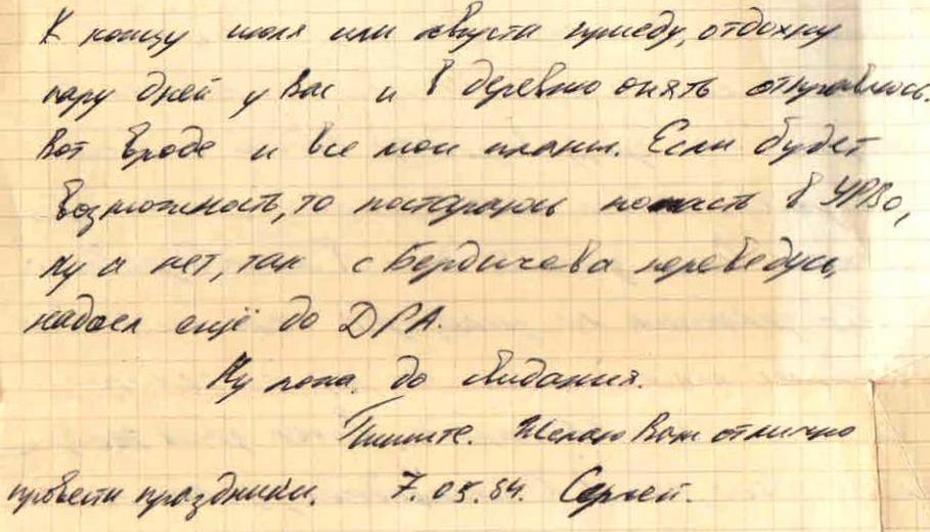 К концу июля или августа приеду, отдохну
пару дней у Вас и в деревню опять отправлюсь.
Вот вроде и все мои планы. Если будет
возможность, то постараюсь попасть в УРВо,
ну а нет, так с Бердичева переведусь,
надоел ещё до ДРА.
Ну пока. до свидания.
Пишите. Желаю Вам отлично
провести праздники. 7.05.84. Сергей.